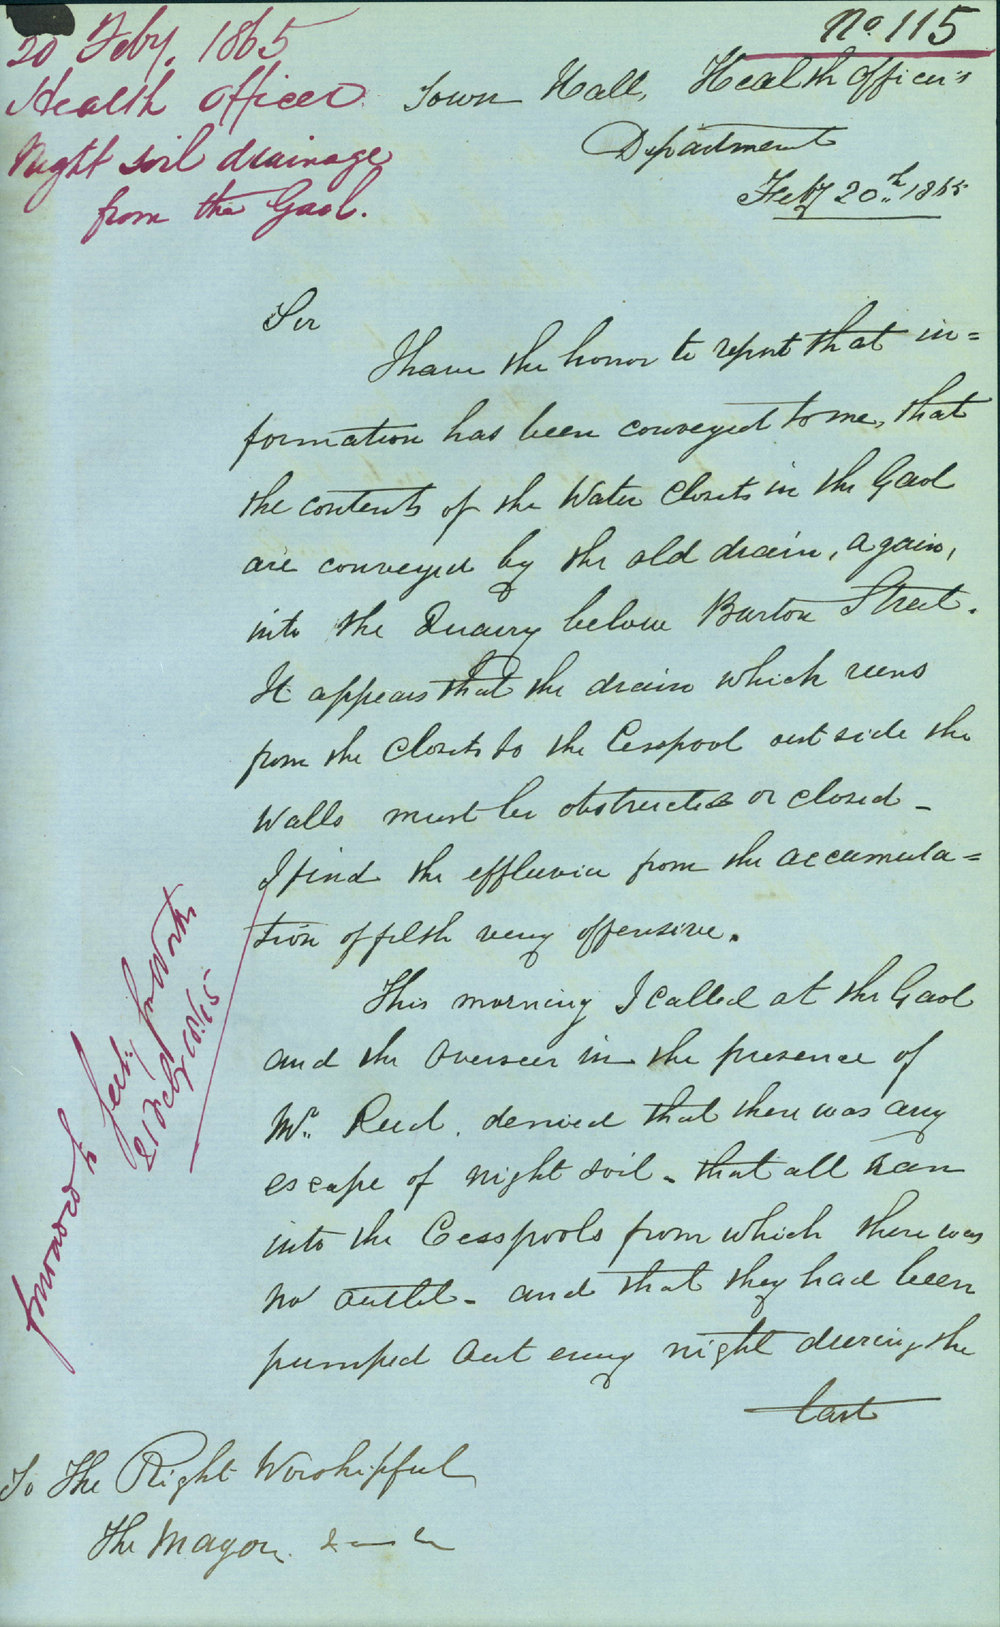 No. 115
20 Feby. 1865
Health Officer
Night soil drainage
from the Gaol.
Town Hall, Health Officer's
Department
Feby 20th 1865
Sir
I have the honor to report that in=
formation has been conveyed to me, that
the contents of the Water Closets in the Gaol
are conveyed by the old drain, again,
into the Quarry below Burton Street.
It appears that the drain which runs
from the Closets to the Cesspool outside the
Walls must be obstructed or closed -
I find the effluvia from the accumula=
tion of filth very offensive.
This morning I called at the Gaol
and the Overseer in the presence of
Mr. Reed. denied that there was any
escape of night soil - that all ran
into the Cesspools from which there was
no outlet - and that they had been
pumped out every night during the
last
forwarded to
for Works
21 Feby 1865
To The Right Worshipful
The Mayor. &